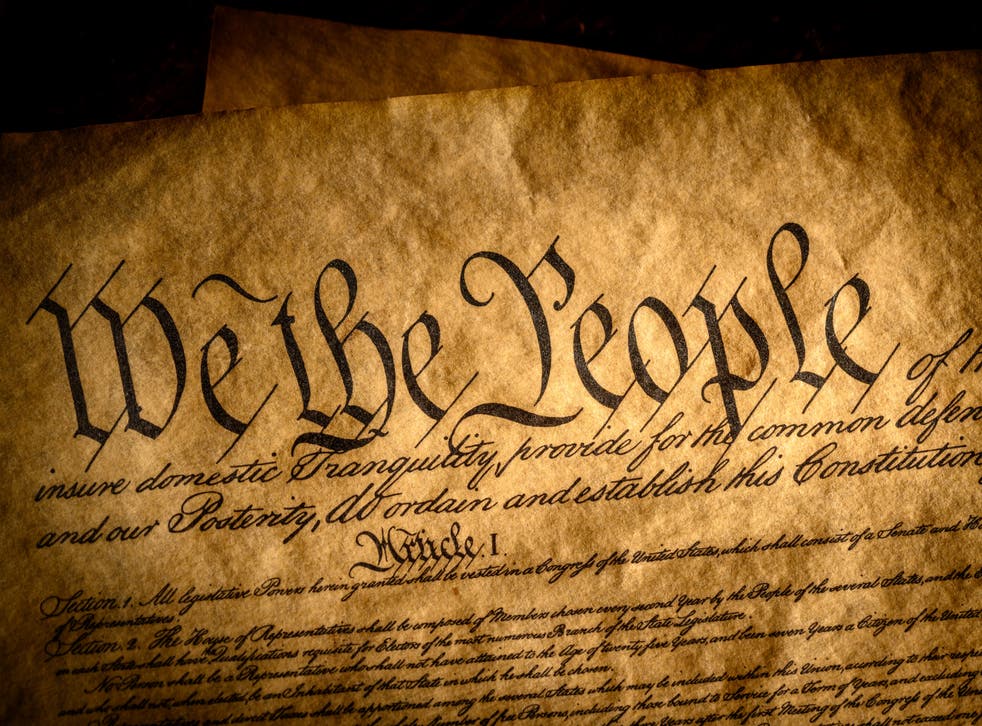 We the People of th
insure domestic Tranquility, provide for the common defen
and our Posterity, do ordain and establish this Constitution
Article. I.
Section. 1. All legislative Powers herein granted shall be vested in a Congress of the United States, which shall consist of a Senate and Ho
of Representatives.
Section. 2. The House of Representatives shall be composed of Members chosen every second Year by the People of the several States, and the
in each State shall have the Qualifications requisite for Electors of the most numerous Branch of the State Legislature.
No Person shall be a Representative who shall not have attained to the Age of twenty five Years, and been seven Years a Citizen of the United
and who shall not, when elected, be an Inhabitant of that State in which he shall be chosen.
Representatives and direct Taxes shall be apportioned among the several States which may be included within this Union, according to their respec
Number of free Persons, including those bound to Service for a Term of Years, and excluding
Years after the first Meeting of the Congress of the Unite
shall not exceed one